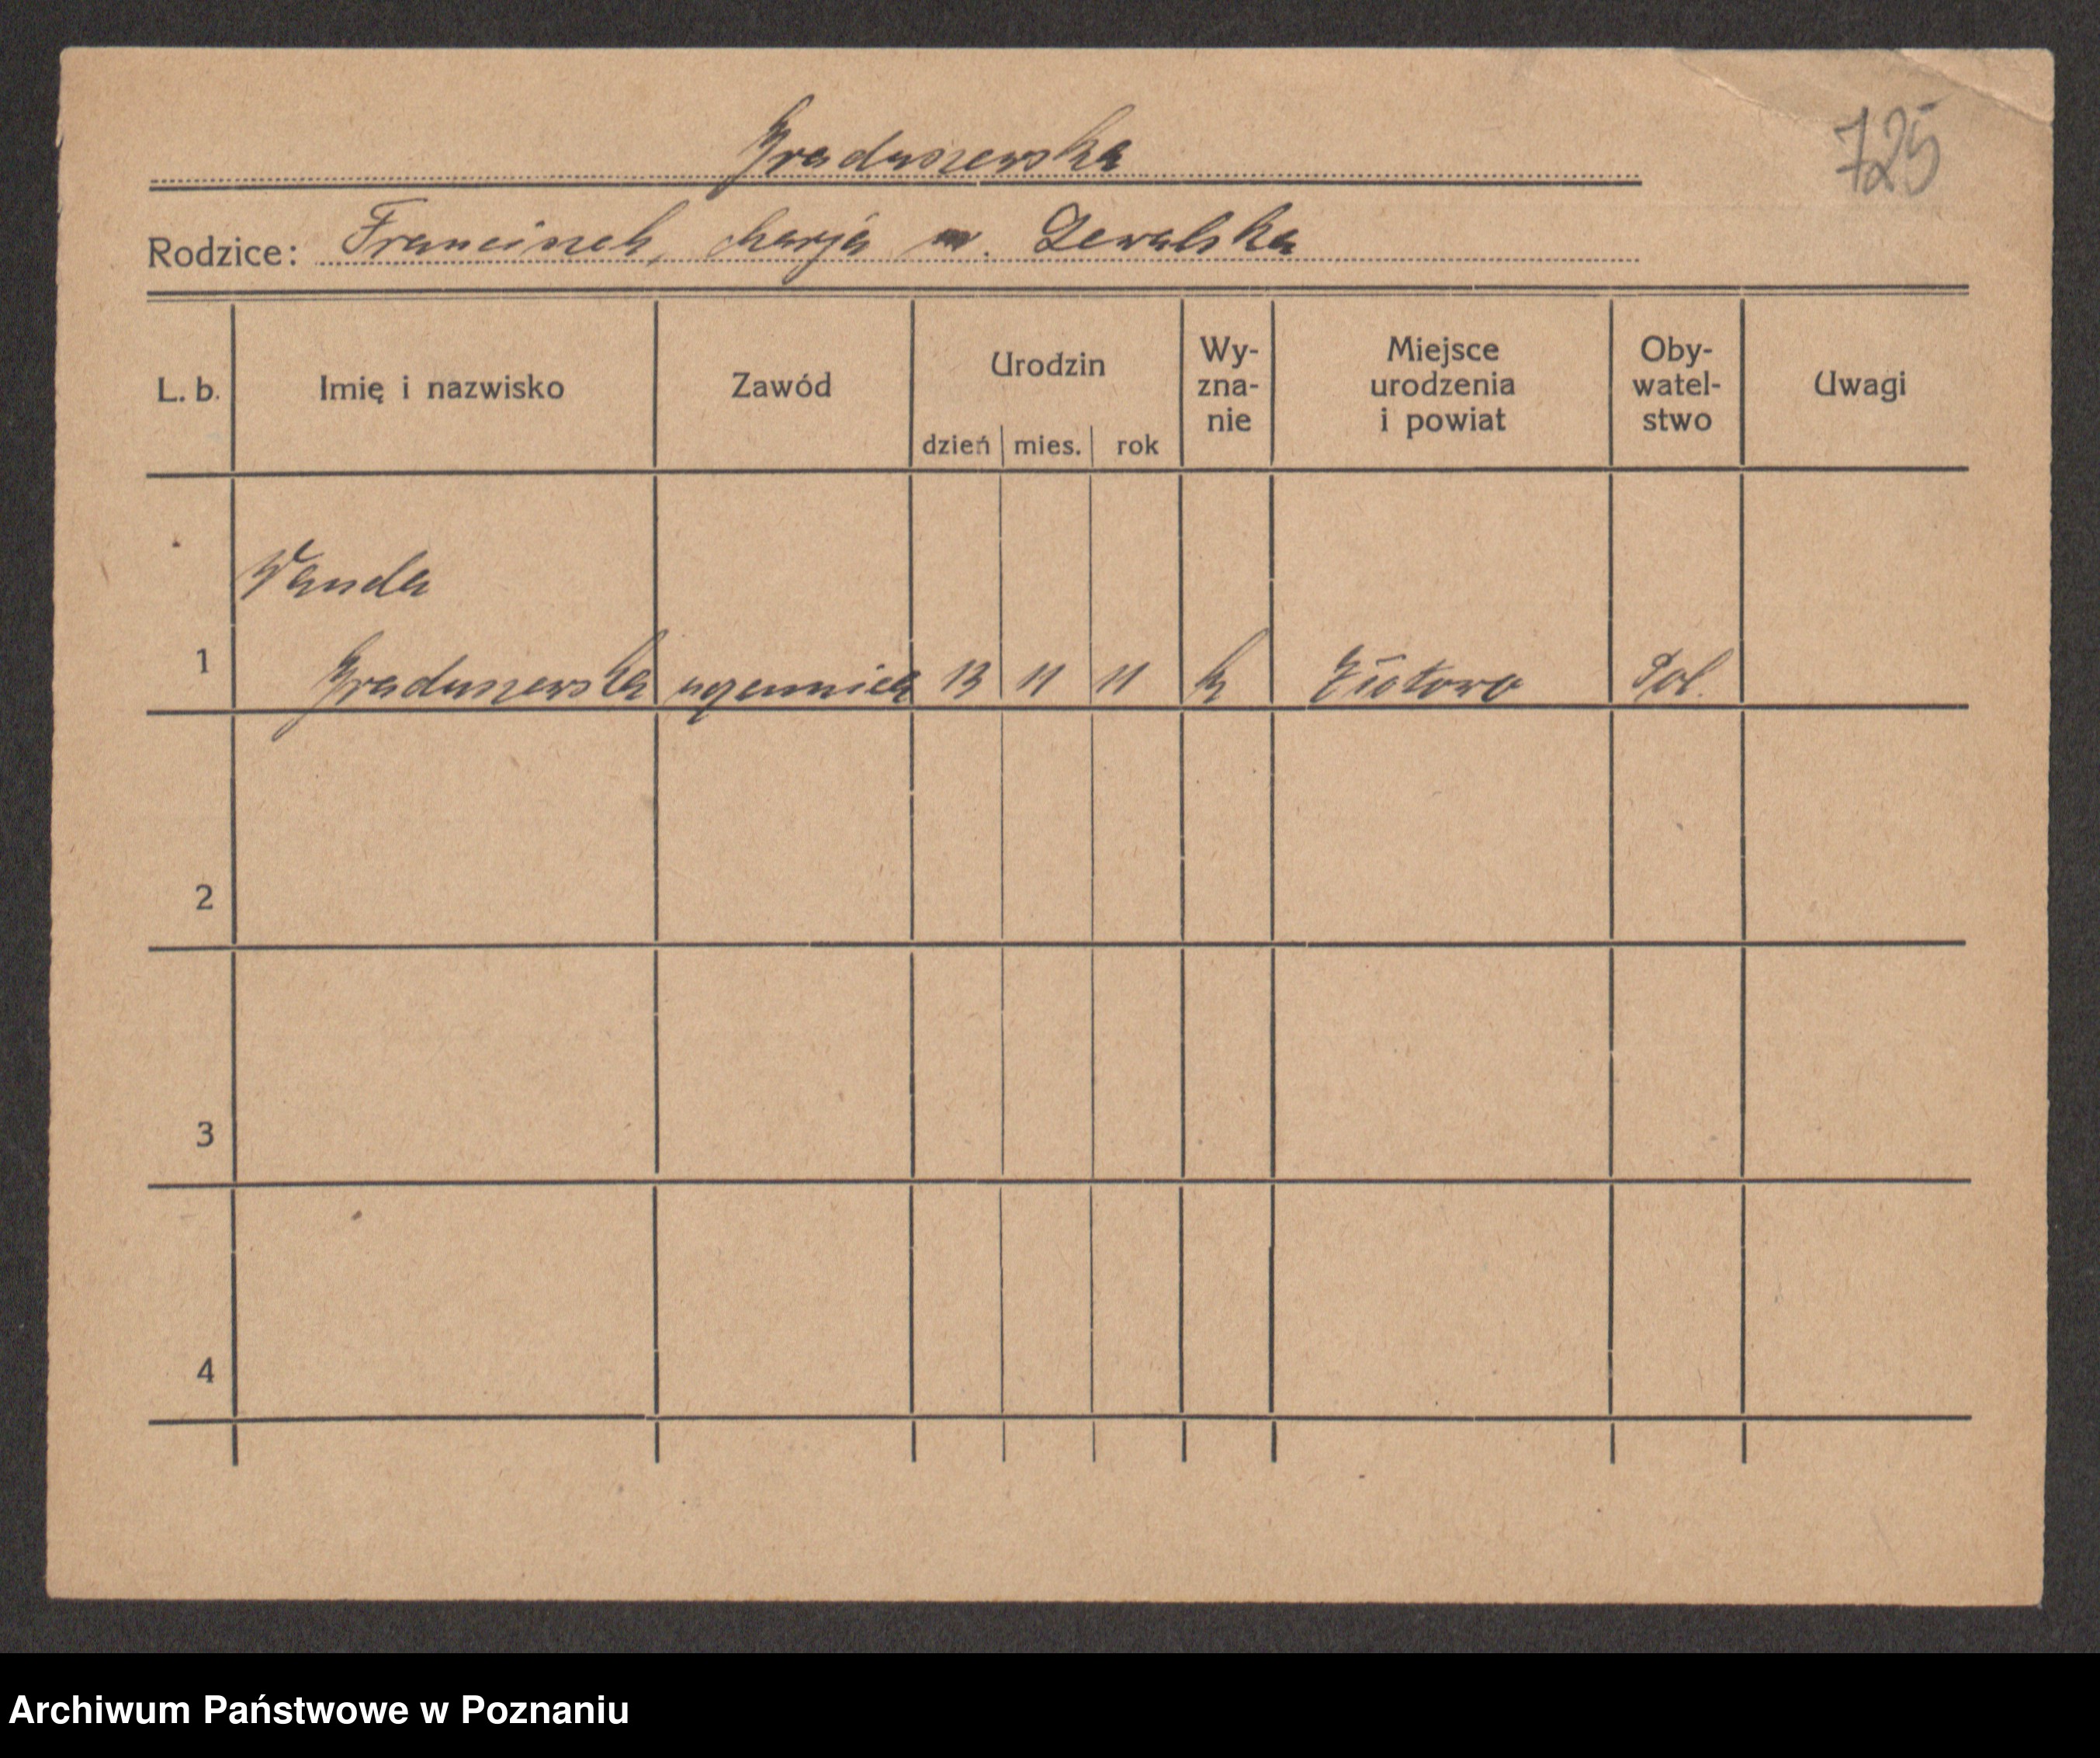 725
Graduszewska
Rodzice: Franciszek, Marja n. Lewalska
L. b. Imię i nazwisko Zawód Urodzin dzień mies. rok Wy-zna-nie Miejsce urodzenia i powiat Oby-watel-stwo Uwagi
Wanda
1 Graduszewska uczennica 13 11 11 k Złotowo Pol.
2
3
4
Archiwum Państwowe w Poznaniu